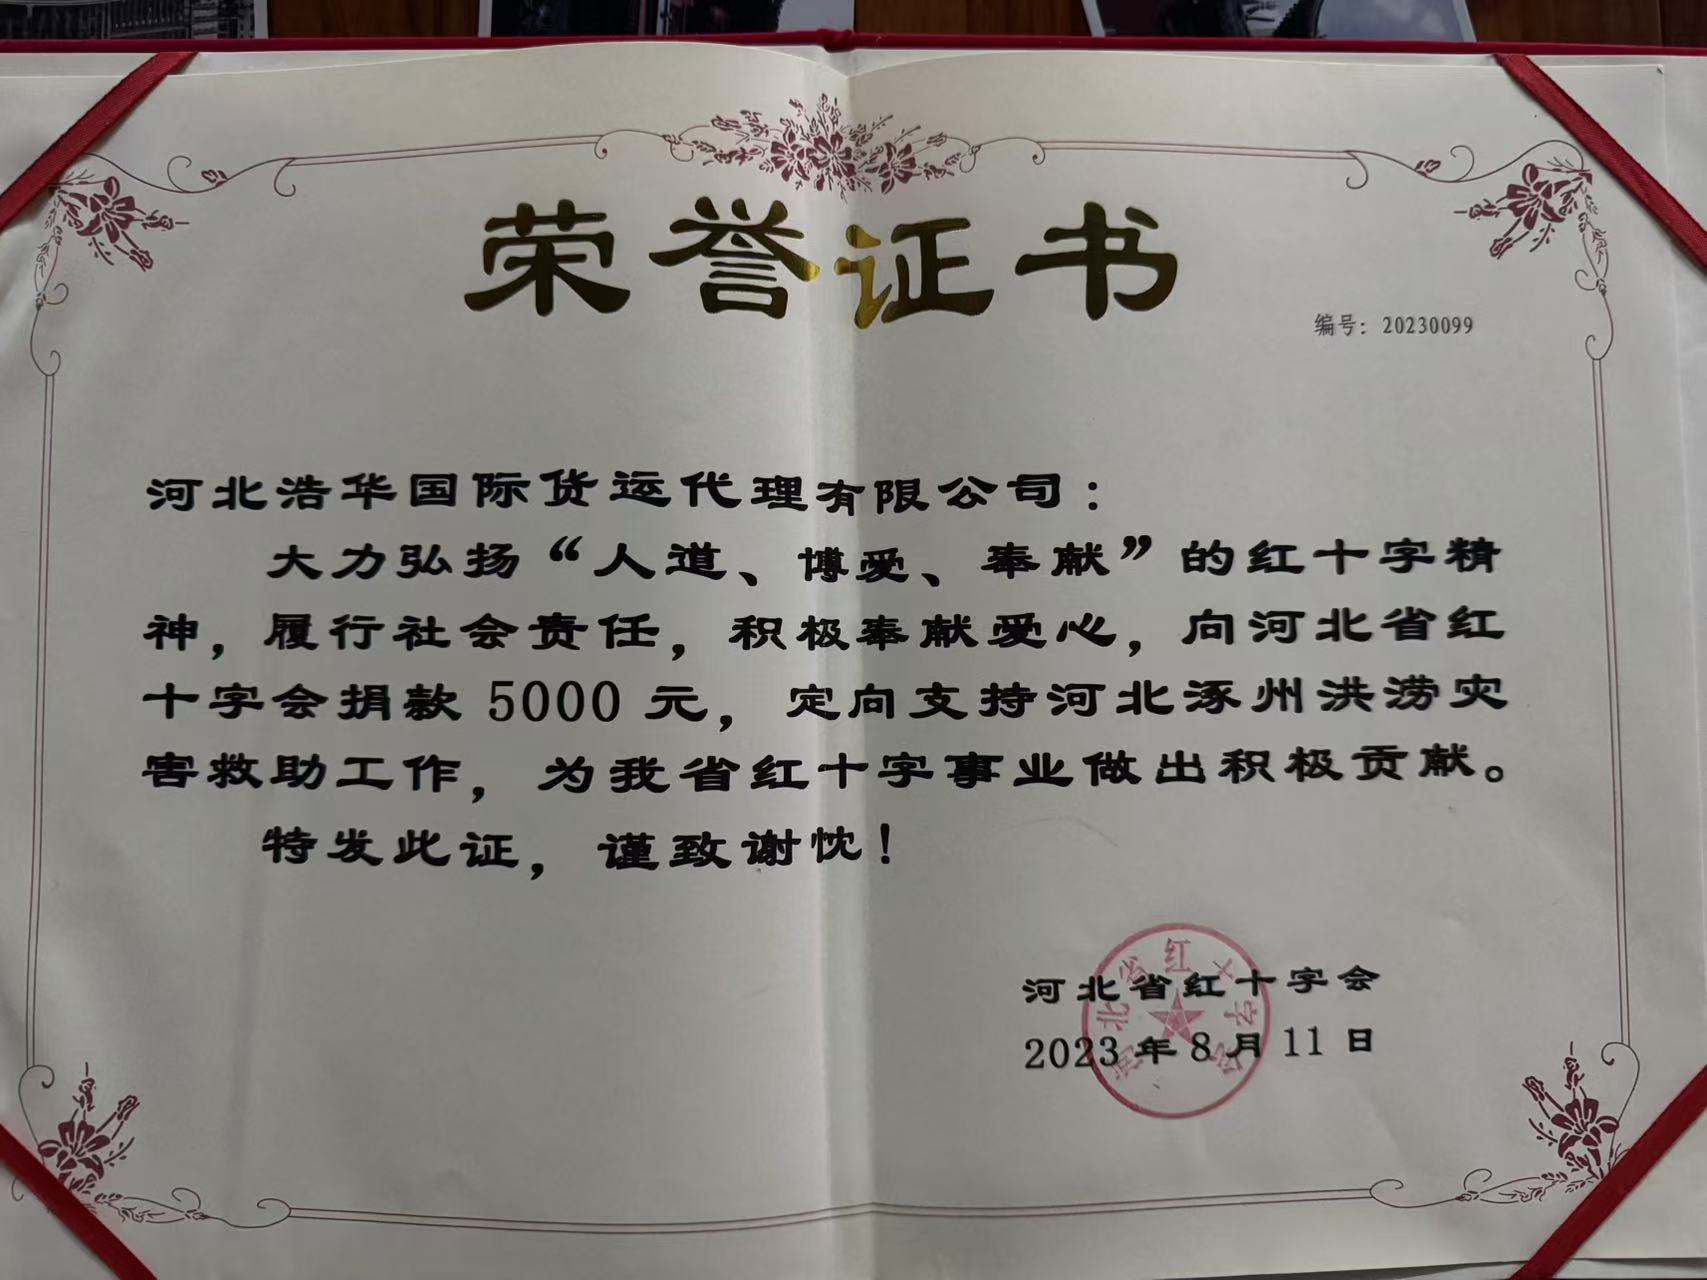 荣誉证书
编号：20230099
河北浩华国际货运代理有限公司：
大力弘扬“人道、博爱、奉献”的红十字精
神，履行社会责任，积极奉献爱心，向河北省红
十字会捐款 5000 元，定向支持河北涿州洪涝灾
害救助工作，为我省红十字事业做出积极贡献。
特发此证，谨致谢忱！
河北省红十字会
2023 年 8 月 11 日
河北省红十字会